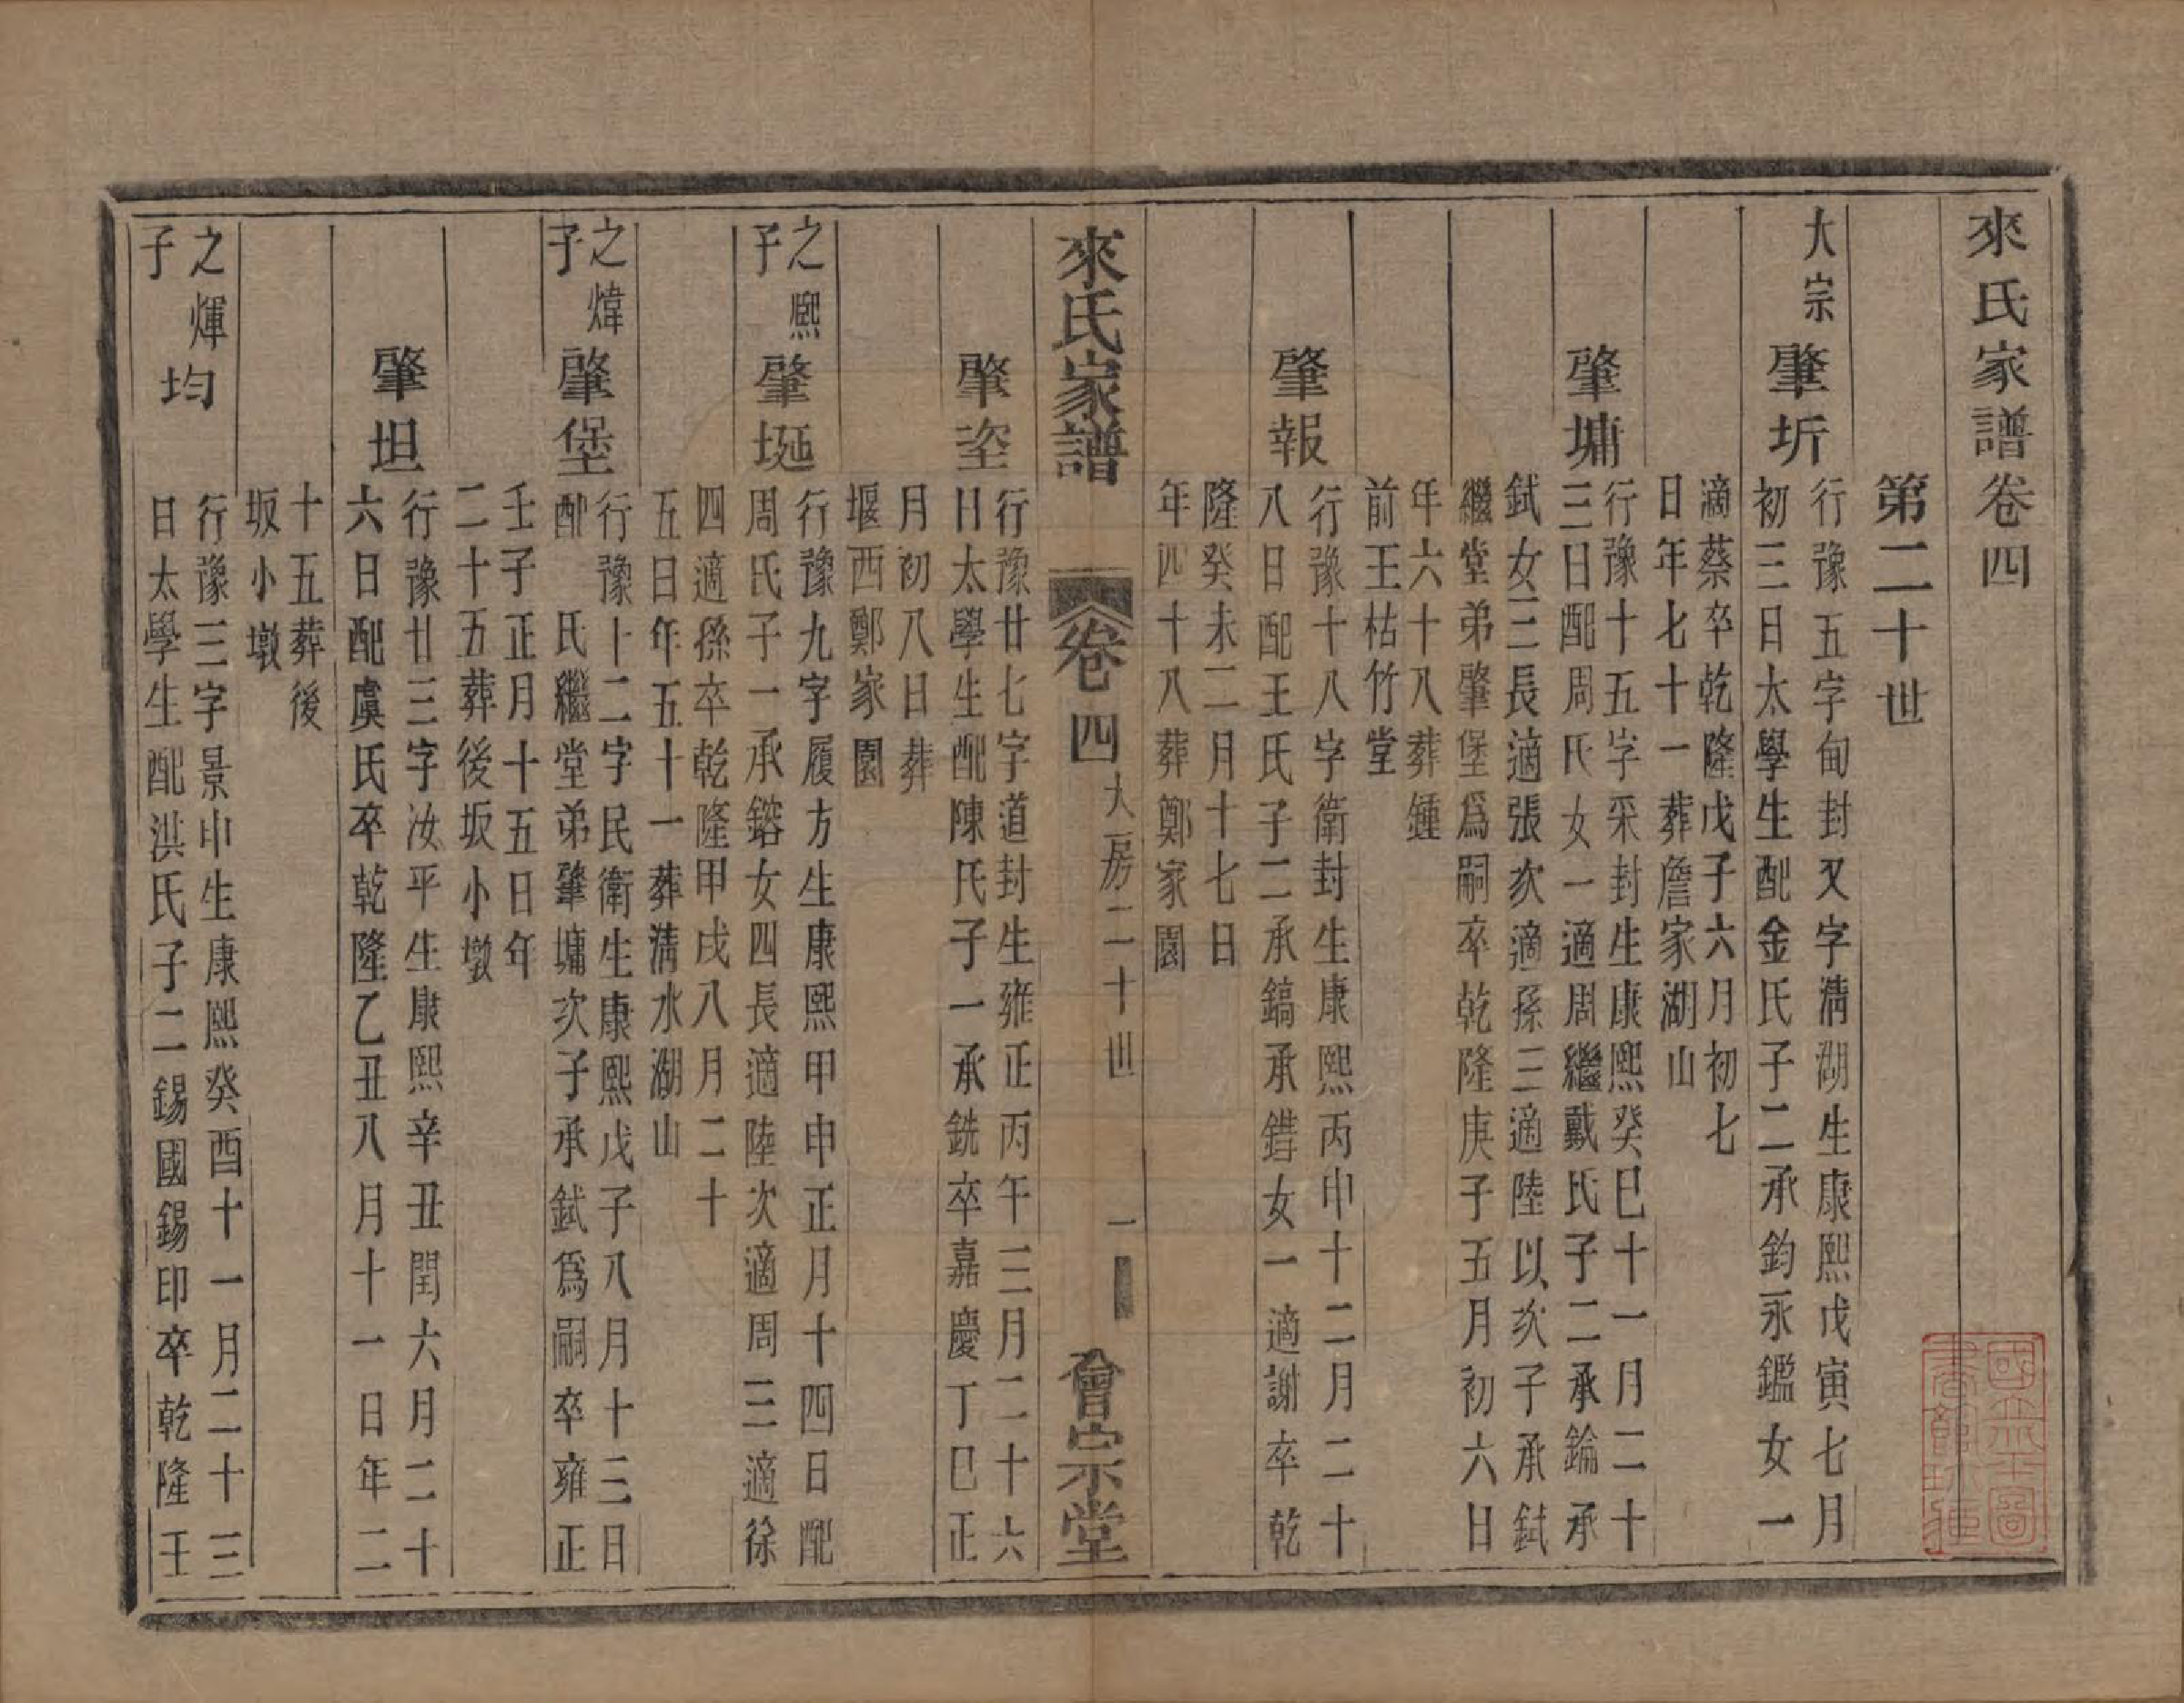 來氏家譜卷四
第二十世
大宗
肇圻
行豫五字甸封又字淸湖生康熙戊寅七月
初三日太學生配金氏子二承鈞永鑑女一
適蔡卒乾隆戊子六月初七
日年七十一葬詹家湖山
肇墉
行豫十五字采封生康熙癸巳十一月二十
三日配周氏女一適周繼戴氏子二承錀承
鉽女三長適張次適孫三適陸以次子承鉽
繼堂弟肇堡爲嗣卒乾隆庚子五月初六日
年六十八葬鍾
前王枯竹堂
肇報
行豫十八字衛封生康熙丙申十二月二十
八日配王氏子二承鎬承錯女一適謝卒乾
隆癸未二月十七日
年四十八葬鄭家園
來氏家譜
卷四
大房二十世
一
會宗堂
肇垐
行豫廿七字道封生雍正丙午三月二十六
日太學生配陳氏子一承銑卒嘉慶丁巳正
月初八日葬
堰西鄭家園
之熙
子
肇埏
行豫九字履方生康熙甲申正月十四日配
周氏子一承鎔女四長適陸次適周三適徐
四適孫卒乾隆甲戌八月二十
五日年五十一葬淸水湖山
之煒
子
肇堡
行豫十二字民衛生康熙戊子八月十三日
配 氏繼堂弟肇墉次子承鉽爲嗣卒雍正
壬子正月十五日年
二十五葬後坂小墩
肇坦
行豫廿三字汝平生康熙辛丑閏六月二十
六日配虞氏卒乾隆乙丑八月十一日年二
十五葬後
坂小墩
之煇
子
均
行豫三字景申生康熙癸酉十一月二十三
日太學生配洪氏子二錫國錫印卒乾隆王